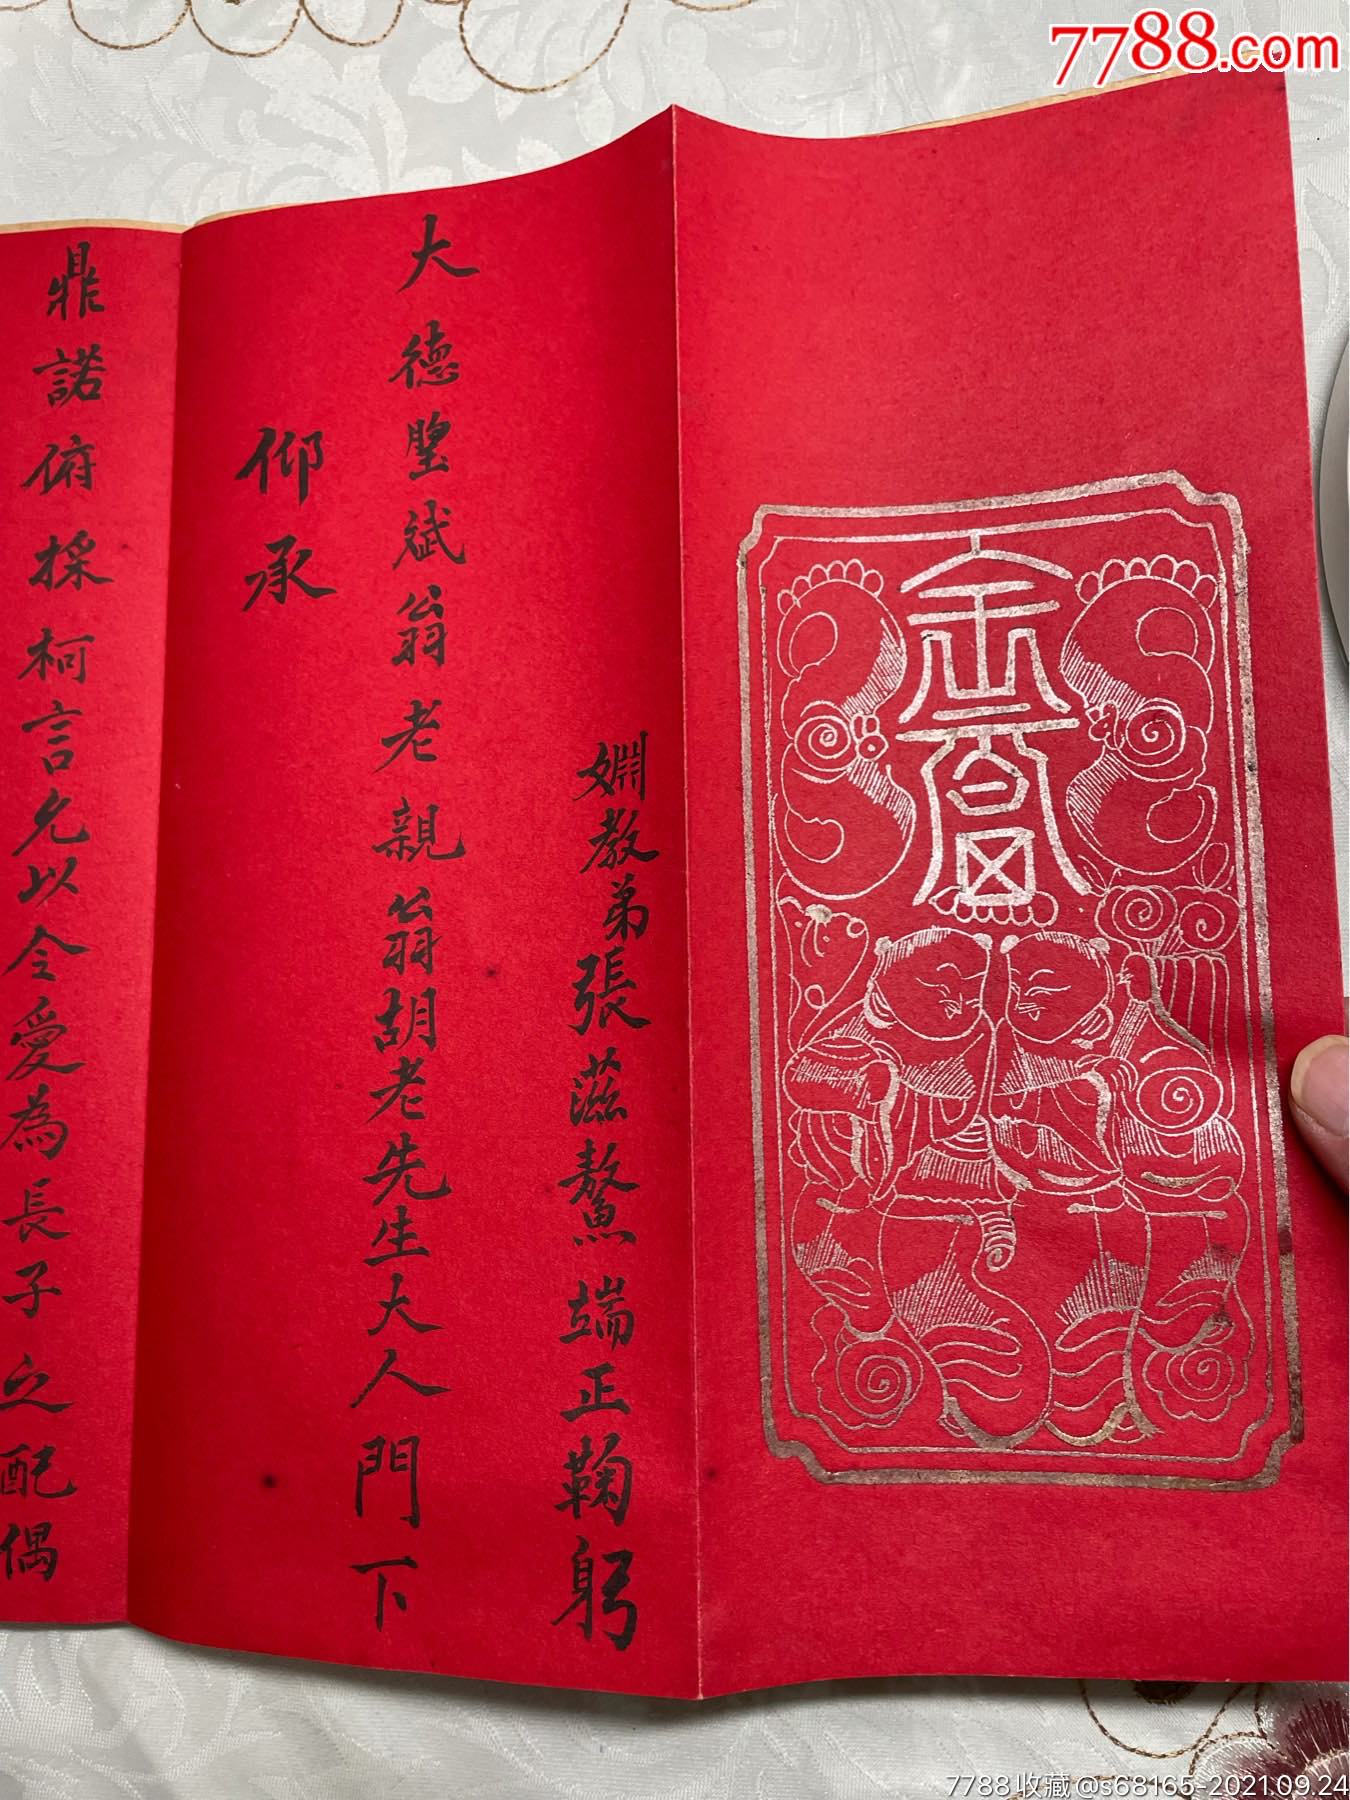 7788.com
全福
姻教弟張滋鰲端正鞠躬
大德望斌翁老親翁胡老先生大人門下
仰承
鼎諾俯採柯言允以令愛為長子之配偶
7788收藏@s68165-2021.09.24